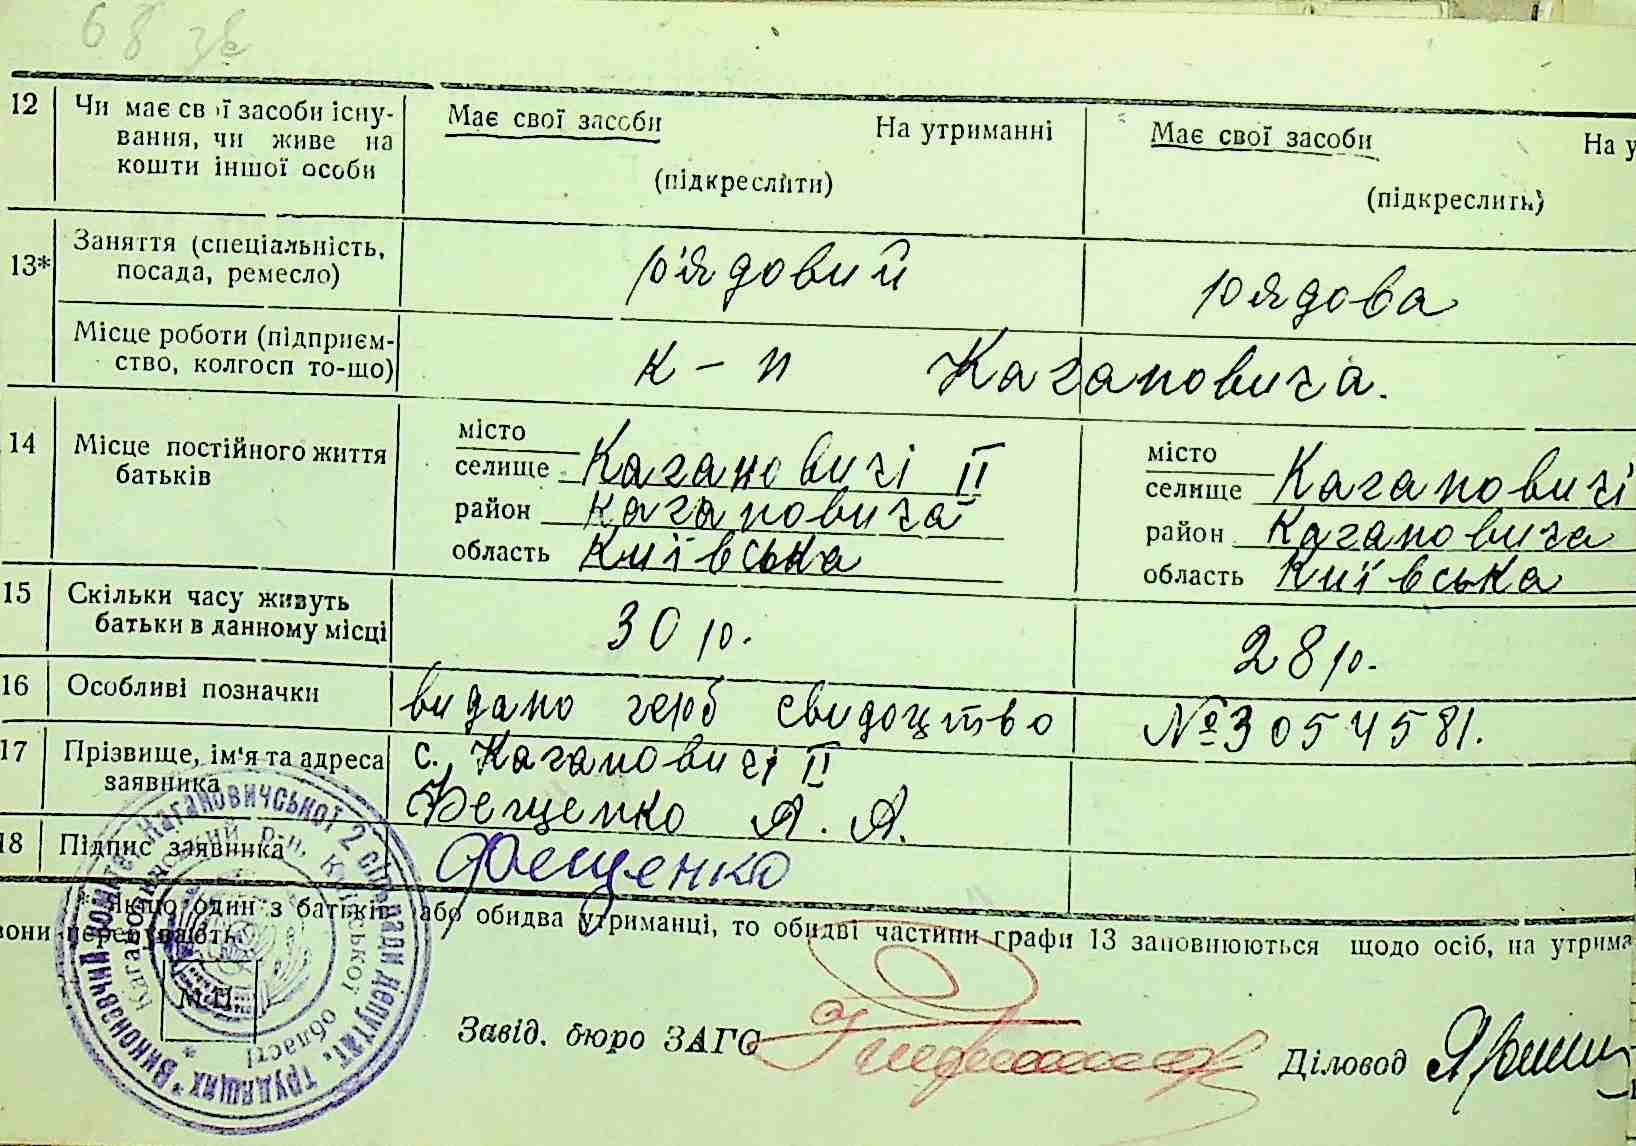 68 зв
12 Чи має свої засоби існу- Має свої засоби На утриманні Має свої засоби На у
вання, чи живе на
кошти іншої особи (підкреслити) (підкреслить)
13* Заняття (спеціальність,
посада, ремесло) рядовий рядова
Місце роботи (підприєм-
ство, колгосп то-що) к-п Кагановича.
14 Місце постійного життя
батьків
місто місто
селище Кагановичі II селище Кагановичі
район Кагановича район Кагановича
область Київська область Київська
15 Скільки часу живуть
батьки в данному місці 30 р. 28 р.
16 Особливі позначки видано герб свидоцтво №3054581.
17 Прізвище, ім'я та адреса с. Кагановичі II
заявника Фещенко А. А.
18 Підпис заявника Фещенко
* Якщо один з батьків або обидва утриманці, то обидві частини графи 13 заповнюються щодо осіб, на утрима
вони перебувають.
М.П.
Завід. бюро ЗАГС Діловод
* Виконавчий комітет Кагановичської 2 сіл. ради депутат. трудящих *
Кагановичський р-н, Київської області